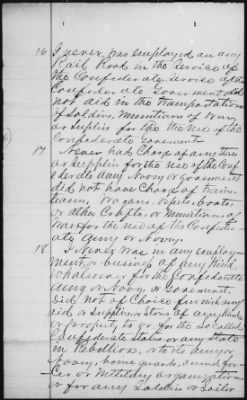 16 I never was employed on any
Rail Road in the Service of
the Confederate Service of the
Confederate Government did
not aid in the Transportation
of Soldiers, Munitions of War
or Supplies for the Use of the
Confederate Government
17 Never had Charge of any Stores
or Supplies for the use of the Conf
ederate Army or Navy or Government
did not have Charge of trains
teams, wagons, vessels, boats
or other Crafts, or Munitions of
War for the use of the Confeder
ate Army or Navy.
18 I Never was in any employ
ment, or business of any Kind
whatsoever for the Confederate
Army or Navy, or Government,
did not of Choice furnish any
aid or Supplies or Stores of any Kind
or property to go for the So Called
Confederate States or any State
in Rebellion, or to its Army or
Navy, home guards, armed for-
ces or Military organization
or for any Soldier or Sailor